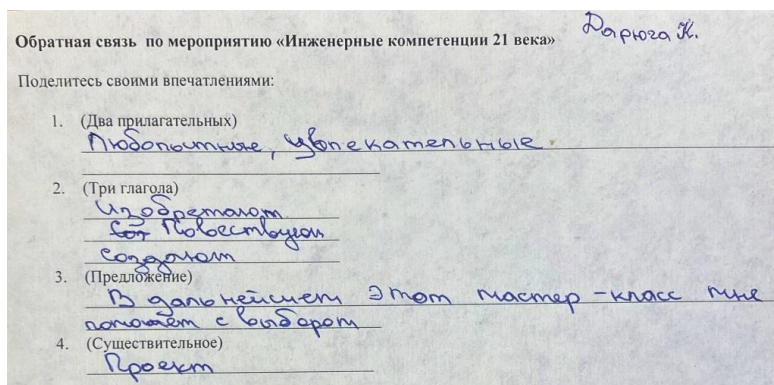 Дарюга К.
Обратная связь по мероприятию «Инженерные компетенции 21 века»
Поделитесь своими впечатлениями:
1. (Два прилагательных)
Любопытные, увлекательные
2. (Три глагола)
Изобретают
Повествуют
Создают
3. (Предложение)
В дальнейшем этот мастер-класс мне
поможет с выбором
4. (Существительное)
Проект